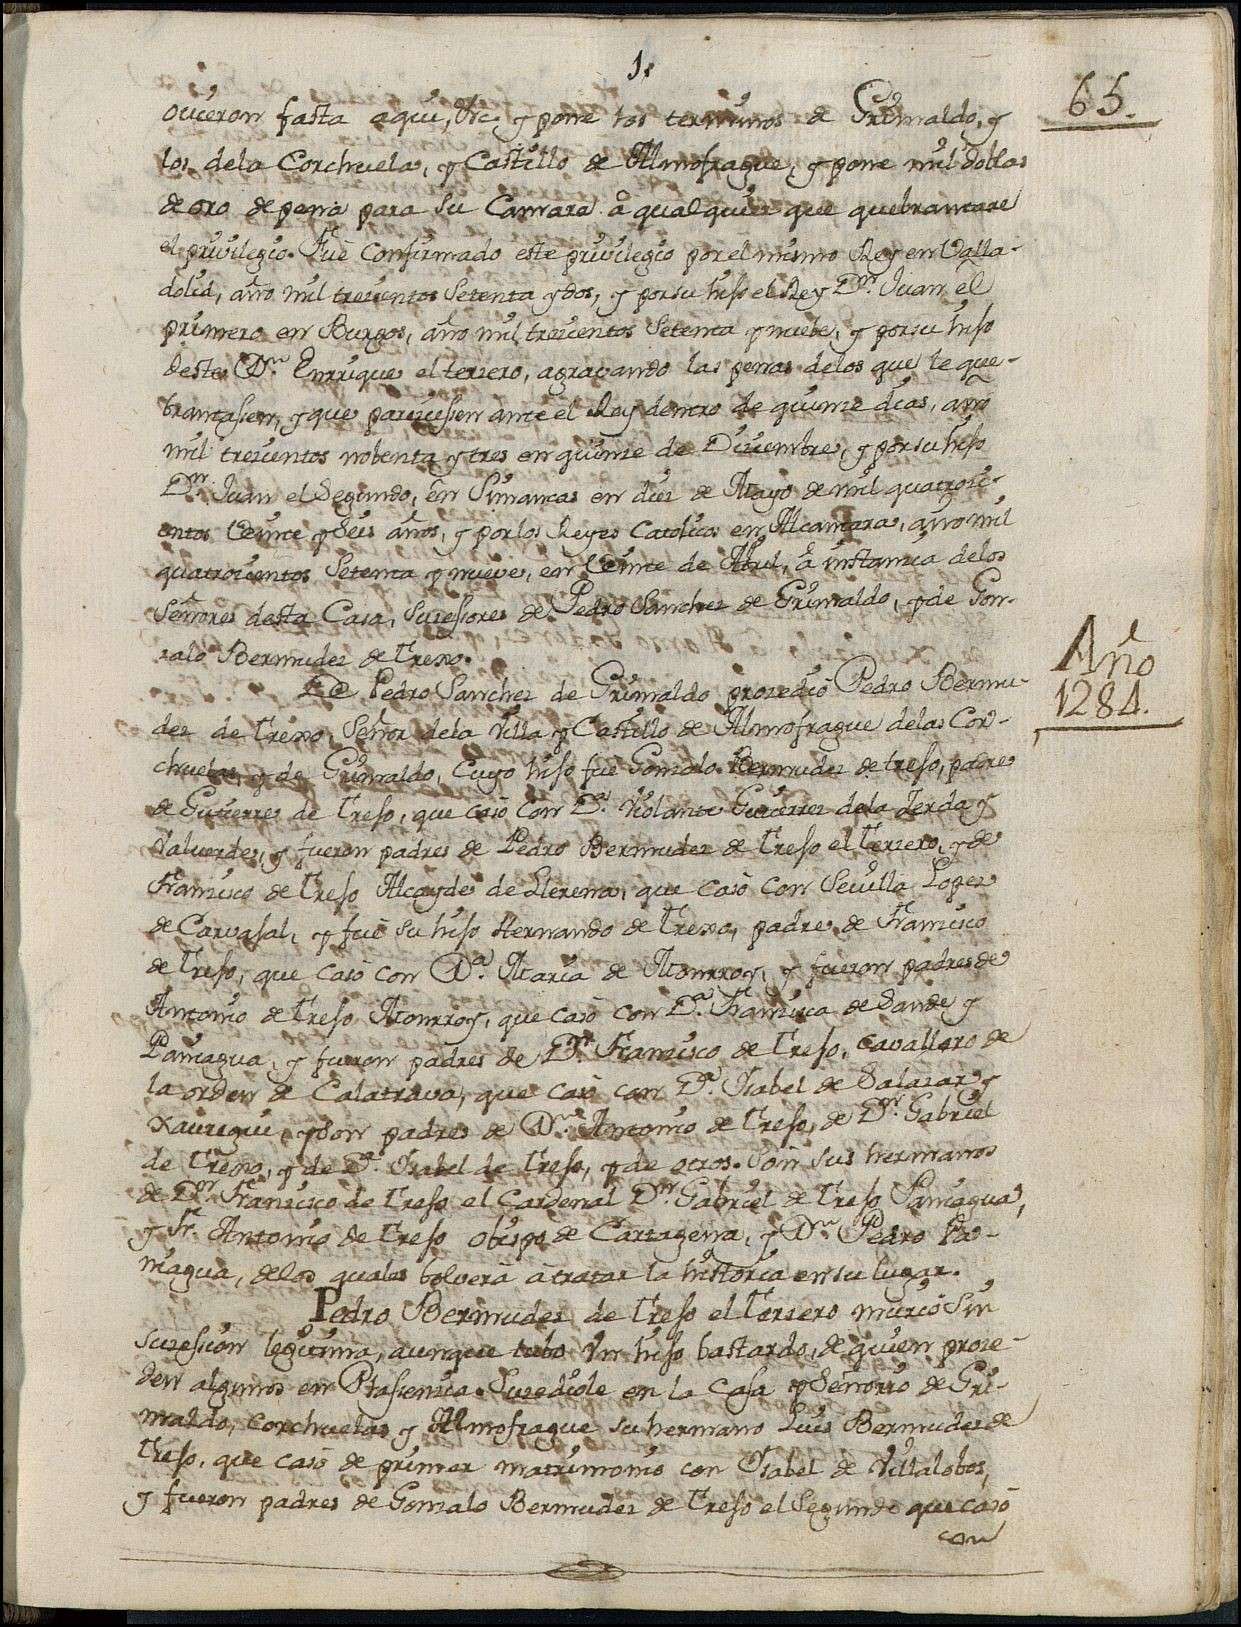 1.
65.
ovieron fasta aqui, &c. y pone los terminos de Grimaldo, y
los dela Corchuela, y Castillo de Almofrague, y pone mil doblas
de oro de pena para su Camara à qualquier que quebrantare
el privilegio. Fue confirmado este privilegio por el mismo Rey en Valla-
dolid, año mil trecientos setenta y dos, y por su hijo el Rey Dn. Juan el
primero en Burgos, año mil trecientos setenta y nuebe, y por su hijo
deste Dn. Enrrique el tercero, agravando las penas delos que le que-
brantasen, y que pareciesen ante el Rey dentro de quince dias, año
mil trecientos nobenta y tres en quince de Diciembre, y por su hijo
Dn. Juan el Segundo, en Simancas en diez de Mayo de mil quatroci-
entos Veinte y seis años, y por los Reyes Catolicos en Alcantara, año mil
quatrocientos Setenta y nueve, en Veinte de Abril, à instancia delos
Señores desta Casa, Sucesores de Pedro Sanchez de Grimaldo, y de Gon-
zalo Bermudez de Trexo.
Año
1284.
De Pedro Sanchez de Grimaldo procedió Pedro Bermu-
dez de Trexo, Señor dela Villa y Castillo de Almofrague delas Cor-
chuelas, y de Grimaldo, Cuyo hijo fue Gonzalo Bermudez de trejo, padre
de Gutierre de Trejo, que casó con Da. Violante Gutierrez dela Zerda y
Valverde, y fueron padres de Pedro Bermudez de Trejo el Tercero, y de
Francisco de Trejo Alcayde de Llerena, que casó con Sevilla Lopez
de Carvajal, y fué su hijo Hernando de Trexo, padre de Francisco
de Trejo, que casó con Da. Maria de Monrroy, y fueron padres de
Antonio de Trejo Monrroy, que casó con Da. Francisca de Sande y
Paniagua, y fueron padres de Dn. Francisco de Trejo, cavallero de
la orden de Calatrava, que casó con Da. Isabel de Salazar y
Xauregui, y son padres de Dn. Antonio de Trejo, de Dn. Gabriel
de Trexo, y de Da. Isabel de Trejo, y de otros. Son sus hermanos
de Dn. Francisco de Trejo el Cardenal Dn. Gabriel de Trejo Paniagua,
y Fr. Antonio de Trejo obispo de Cartagena, y Dn. Pedro Pa-
niagua, delos quales bolverá à tratar la historia en su lugar.
Pedro Bermudez de Trejo el Tercero murió sin
sucesion legitima, aunque tubo Vn hijo bastardo, de quien proce-
den algunos en Plasencia. Sucediole en la Casa y Señorio de Gri-
maldo, Corchuelas y Almofrague su hermano Luis Bermudez de
Trejo, que casó de primer matrimonio con Isabel de Villalobos,
y fueron padres de Gonzalo Bermudez de Trejo el Segundo que casó
con